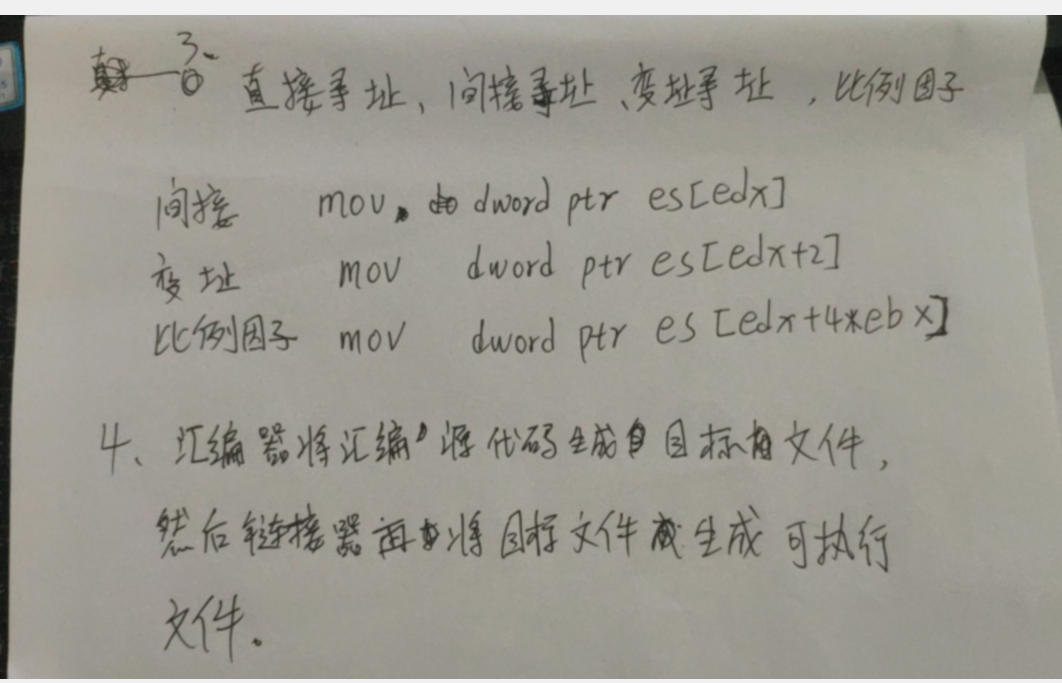 3、
直接寻址、间接寻址、变址寻址，比例因子
间接 mov dword ptr es[edx]
变址 mov dword ptr es[edx+2]
比例因子 mov dword ptr es[edx+4*ebx]
4、汇编器将汇编源代码生成目标文件，
然后链接器再将目标文件生成可执行
文件。